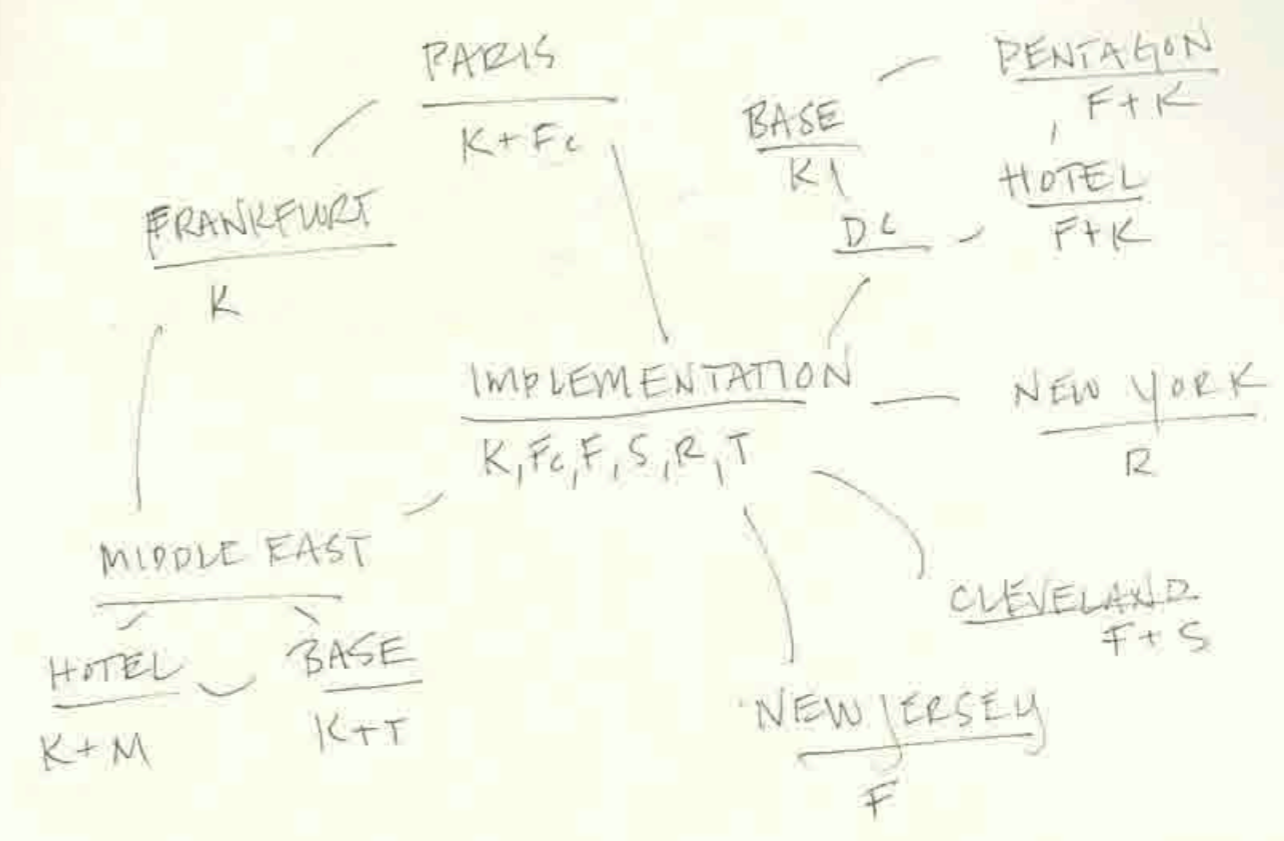 PARIS
K + Fc
FRANKFURT
K
BASE
K
PENTAGON
F + K
HOTEL
F + K
DC
IMPLEMENTATION
K, Fc, F, S, R, T
NEW YORK
R
MIDDLE EAST
HOTEL
K + M
BASE
K + T
CLEVELAND
F + S
NEW JERSEY
F